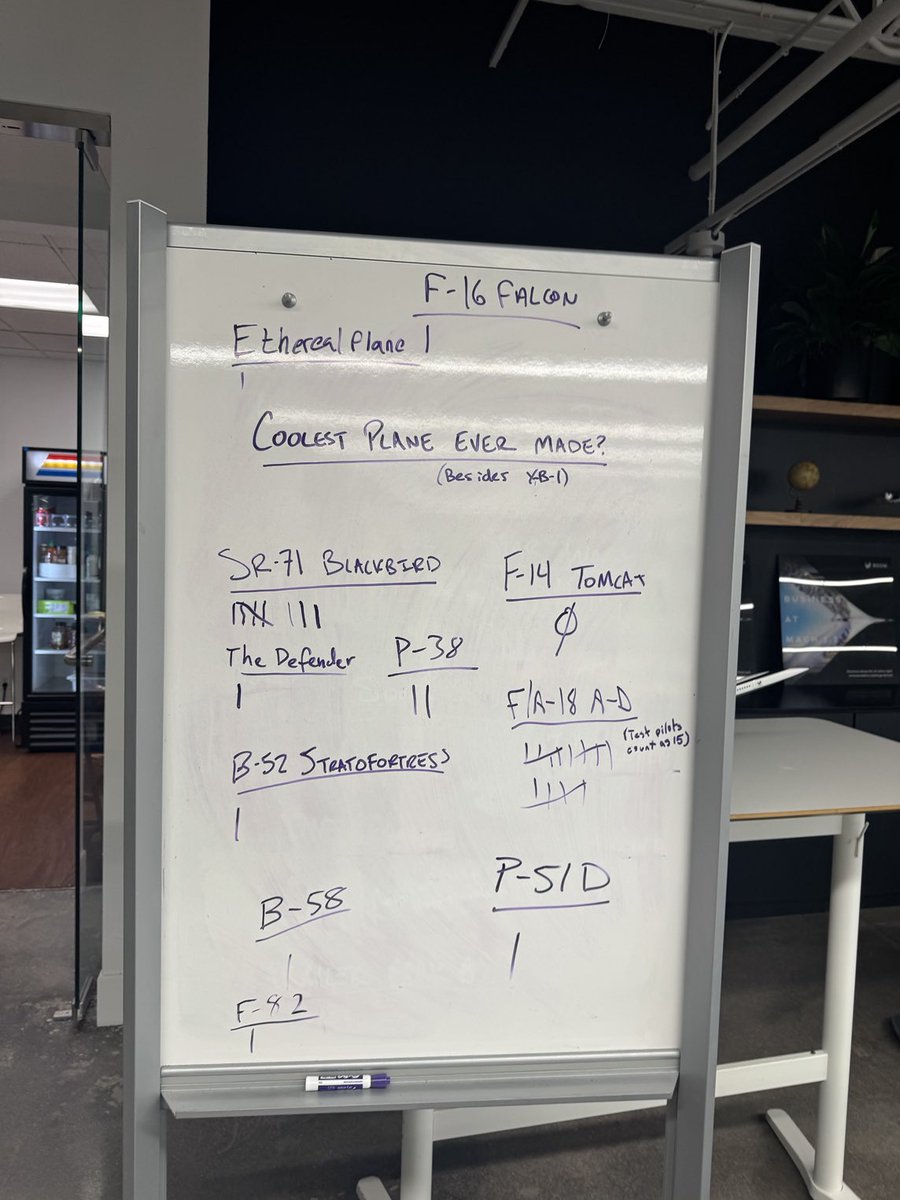 F-16 FALCON
Ethereal Plane |
|
COOLEST PLANE EVER MADE?
(Besides XB-1)
SR-71 BLACKBIRD
|||| |||
F-14 TOMCAT
Ø
The Defender
|
P-38
||
F/A-18 A-D
(Test pilots
count as 15)
B-52 STRATOFORTRESS
|
B-58
|
P-51D
|
F-82
|
BOOM
BUSINESS
AT
MACH